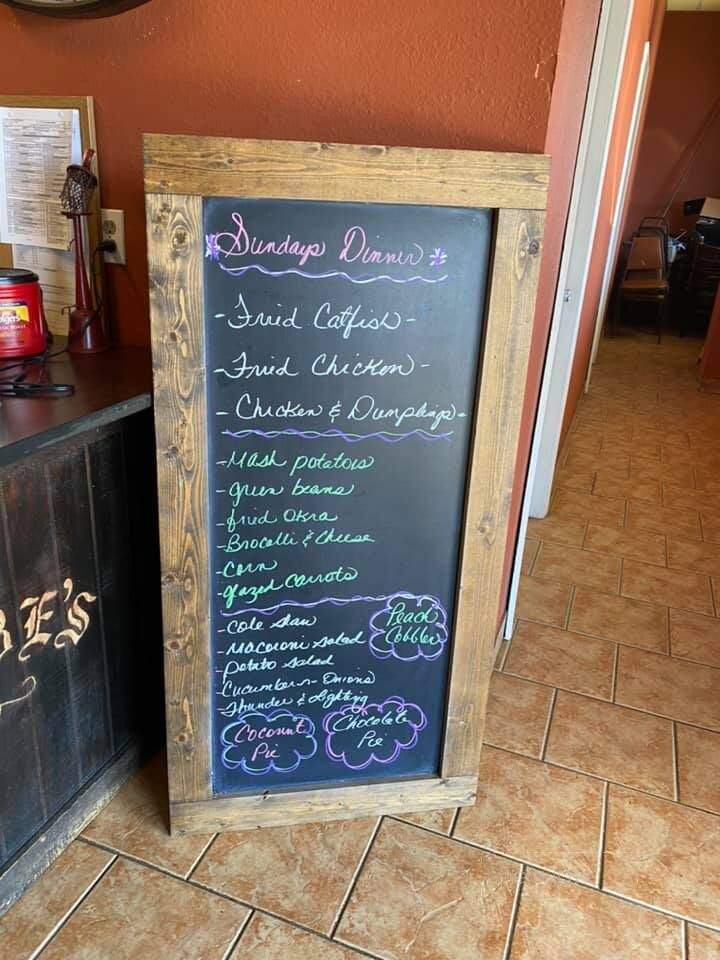 Sundays Dinner
- Fried Catfish -
- Fried Chicken -
- Chicken & Dumplings -
- Mash potatoes
- green beans
- fried Okra
- Brocolli & Cheese
- Corn
- glazed carrots
- Cole slaw
- Macoroni salad
- potato salad
- Cucumber-n-Onions
- Thunder & Lighting
Peach
Cobbler
Coconut
Pie
Chocolate
Pie
BE'S